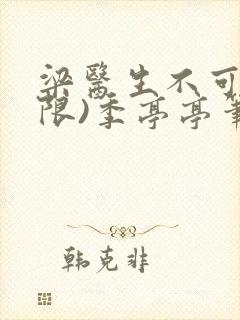 梁醫生不可
限)季亭亭筆
韓克非